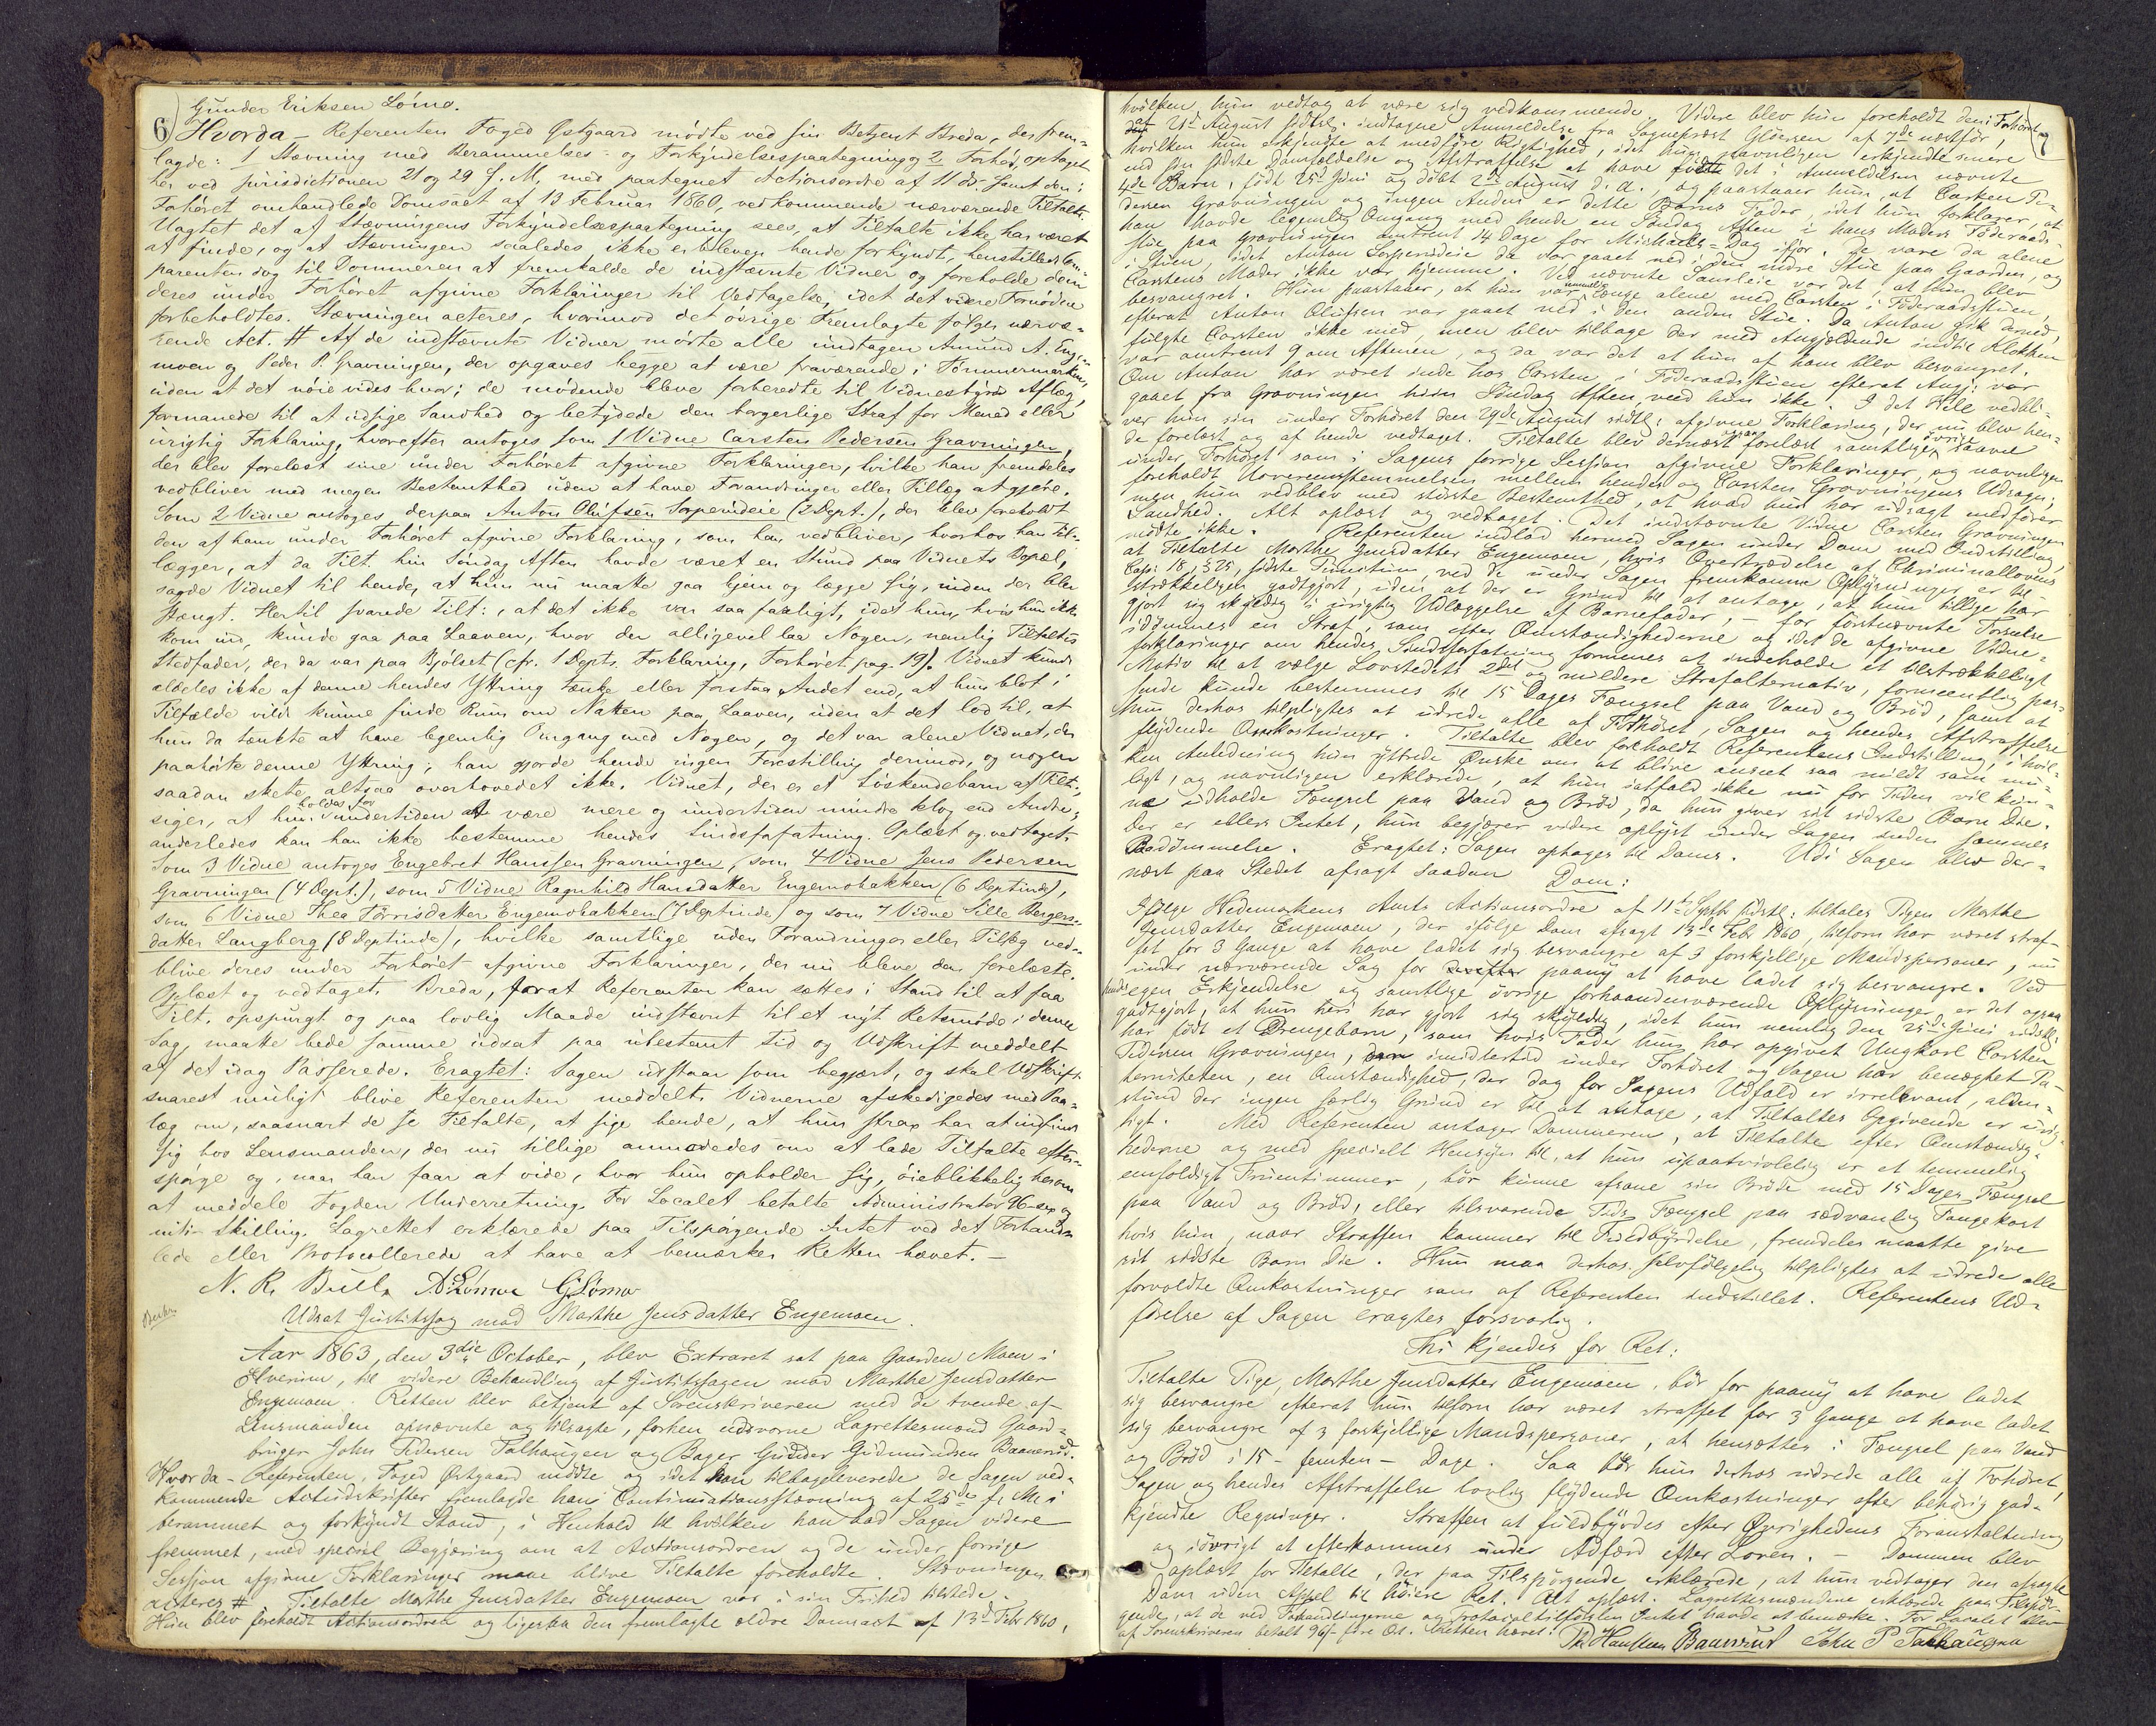 Gunder Eriksen Lömo.
6) Hvorda - Referenten Foged Østgaard mödte ved sin Betjent Breda, der frem-
lagde: 1 Stævning med Berammelses- og Forkyndelsespaategning og 2 Forhör, optaget
her ved Jurisdictionen 21 og 29 f. M, med paategnet Actionsordre af 11 ds. samt den i
Forhöret omhandlede Domsact af 13 Februar 1860, vedkommende nærværende Tiltalte.
Uagtet det af Stævningens Forkyndelsespaategning sees, at Tiltalte ikke har været
at finde, og at Stævningen saaledes ikke er bleven hende forkyndt, henstilled Com-
parenten dog til Dommeren at fremkalde de indstævnte Vidner og foreholde dem
deres under Forhöret afgivne Forklaringer til Vedtagelse, idet det videre Fornödne
forbeholdtes. Stævningen acteres, hvorimod det övrige Fremlagte fölger nærvæ-
rende Act. # Af de indstævnte Vidner mödte alle undtagen Amund A. Enge-
moen og Peder P. Gravningen, der opgaves begge at være fraværende i Tömmermarken,
uden at det nöie vides hvor; de mödende bleve forberedte til Vidnesbyrds Aflæg,
formanede til at udsige Sandhed og betydede den borgerlige Straf for Mened eller
urigtig Forklaring, hvorefter antoges som 1 Vidne Carsten Pedersen Gravningen,
der blev forelæst sine under Forhöret afgivne Forklaringer, hvilke han fremdeles
vedbliver med megen Bestemthed uden at have Forandringer eller Tillæg at gjöre.
Som 2 Vidne antoges derpaa Anton Olufsen Sorperudeie (2 Dept.), der blev foreholdt
den af ham under Forhöret afgivne Forklaring, som han vedbliver, hvorhos han til-
lægger, at da Tilt. hin Söndag Aften havde været en Stund paa Vidnets Bopæl,
sagde Vidnet til hende, at hun nu maatte gaa hjem og lægge sig, inden der blev
stængt. Hertil svarede Tilt:, at det ikke var saa farligt, idet hun, hvis hun ikke
kom ind, kunde gaa paa Laaven, hvor der alligevel laa Nogen, nemlig Tiltaltes
Stedfader, der da var paa Bjölset (cfr. 1 Depts. Forklaring, Forhöret pag. 19). Vidnet kunde
aldeles ikke af denne hendes Yttring tænke eller forstaa Andet end, at hun blot i
Tilfælde vilde kunne finde Rum om Natten paa Laaven, uden at det lod til, at
hun da tænkte at have legemlig Omgang med Nogen, og det var alene Vidnet, der
paahörte denne Yttring; han gjorde hende ingen Forestilling derimod, og nogen
saadan skete altsaa overhovedet ikke. Vidnet, der er et Söskendebarn af Tilt.,
siger, at hun holdes for undertiden at være mere og undertiden mindre klog end Andre;
anderledes kan han ikke bestemme hendes Sindsforfatning. Oplæst og vedtaget.
Som 3 Vidne antoges Engebret Hanssen Gravningen, som 4 Vidne Jens Pedersen
Gravningen (4 Dept.), som 5 Vidne Ragnhild Hansdatter Engemobakken (6 Deptinde),
som 6 Vidne Thea Törrisdatter Engemobakken (7 Deptinde) og som 7 Vidne Sille Bergers-
datter Langberg (8 Deptinde), hvilke samtlige uden Forandringer eller Tillæg ved-
blive deres under Forhöret afgivne Forklaringer, der nu bleve dem forelæste.
Oplæst og vedtaget. Breda, forat Referenten kan sættes i Stand til at faa
Tilt. opspurgt og paa lovlig Maade indstævnt til et nyt Retsmöde i denne
Sag, maatte bede samme udsat paa ubestemt Tid og Udskrift meddelt
af det idag Passerede. Eragtet: Sagen udstaar som begjært, og skal Udskrift
snarest muligt blive Referenten meddelt. Vidnerne afskedigedes med Paa-
læg om, saasnart de se Tiltalte, at sige hende, at hun strax har at indfinde
sig hos Lensmanden, der nu tillige anmodedes om at lade Tiltalte efter-
spörge og, naar han faar at vide, hvor hun opholder sig, öieblikkelig herom
at meddele Fogden Underretning. For Localet betalte Administrator 96 - sex og
niti - Skilling. Lagrettet erklærede paa Tilspörgende Intet ved det Forhand-
lede eller Protocollerede at have at bemærke. Retten hævet. -
N. R. Bull. A Lömoe G. Lömo
Udsat Justitssag mod Marthe Jensdatter Engemoen.
Aar 1863, den 3die October, blev Extraret sat paa Gaarden Moen i
Elverum, til videre Behandling af Justitssagen mod Marthe Jensdatter
Engemoen. Retten blev betjent af Sorenskriveren med de tvende af
Lensmanden opnævnte og tilsagte, forhen edsvorne Lagrettesmænd Gaard-
bruger John Pedersen Talhaugen og Bager Gudmundsen Baanerud.
Hvorda - Referenten, Foged Østgaard mödte og idet han tilbageleverede de Sagen ved-
kommende Actudskrifter fremlagde han Continuationsstævning af 25de f. M. i
berammet og forkyndt Stand, i Henhold til hvilken han bad Sagen videre
fremmet, med speciel Begjæring om at Actionsordren og de under forrige
Session afgivne Forklaringer maa blive Tiltalte foreholdte. Stævningen
acteres #. Tiltalte Marthe Jensdatter Engemoen var i sin Frihed tilstede.
Hun blev foreholdt Actionsordren og ligesaa den fremlagte ældre Domsact af 13de Febr 1860,
7
hvilken hun vedtog at være sig vedkommende. Videre blev hun foreholdt den i Forhöret
af 21de August sidstl. indtagne Anmeldelse fra Sognepræst Glöersen af 7de næstför,
hvilken hun erkjendte at medföre Rigtighed, idet hun navnligen erkjendte senere
end sin sidste Domfældelse og Afstraffelse at have födt det i Anmeldelsen nævnte
4de Barn, födt 25de Juni og döbt 2den August d. A., og paastaaer hun, at Carsten Pe-
dersen Gravningen og ingen Anden er dette Barns Fader, idet hun forklarer, at
han havde legemlig Omgang med hende en Söndag Aften i hans Moders Föderaads-
stue paa Gravningen omtrent 14 Dage för Michaels-Dag ifjor. De vare da alene
i Stuen, idet Anton Sorperudeie da var gaaet ned i den nedre Stue paa Gaarden, og
Carstens Moder ikke var hjemme. Ved nævnte Samleie var det, at hun blev
besvangret. Hun paastaaer, at hun var længe alene med Carsten i Föderaadsstuen,
efterat Anton Olufsen var gaaet ned i den anden Stue. Da Anton gik derned,
fulgte Carsten ikke med, men blev tilbage der med Angjældende indtil Klokken
var omtrent 9 om Aftenen, og da var det at hun af ham blev besvangret.
Om Anton har været inde hos Carsten i Föderaadsstuen efterat Angj: var
gaaet fra Gravningen hiin Söndag Aften, veed hun ikke. I det Hele vedbli-
ver hun sin under Forhöret den 29de August sidstl. afgivne Forklaring, der nu blev hen-
de forelæst og af hende vedtaget. Tiltalte blev dernæst forelæst samtlige övrige saavel
under Forhöret som i Sagens forrige Session afgivne Forklaringer, og navnligen
foreholdt Uoverensstemmelsen mellem hendes og Carsten Gravningens Udsagn;
men hun vedblev med största Bestemthed, at hvad hun har udsagt medförer
Sandhed. Alt oplæst og vedtaget. Det indstævnte Vidne Carsten Gravningen
mödte ikke. Referenten indlod hermed Sagen under Dom med Indstilling,
at Tiltalte Marthe Jensdatter Engemoen, hvis Overtrædelse af Criminallovens
Cap: 18, § 25, sidste Punctum, ved de under Sagen fremkomne Oplysninger er til-
strækkeligen godtgjort, uden at der er Grund til at antage, at hun tillige har
gjort sig skyldig i urigtig Udlæggelse af Barnefader, - for förstnævnte Forseelse
idömmes en Straf, som efter Omstændighederne og idet de afgivne Vidne-
forklaringer om hendes Sindsforfatning formenes at indeholde et tilstrækkeligt
Motiv til at vælge Lovstedets 2det og mildere Strafalternativ, formeentlig pas-
sende kunde bestemmes til 15 Dages Fængsel paa Vand og Bröd, samt at
hun derhos tilpligtes at udrede alle af Forhöret, Sagen og hendes Afstraffelse
flydende Omkostninger. Tiltalte blev foreholdt Referentens Indstilling, i hvil-
ken Anledning hun yttrede Önske om at blive anseet saa mildt som mu-
ligt, og navnligen erklærede, at hun isaafald ikke nu for Tiden vil kun-
ne udholde Fængsel paa Vand og Bröd, da hun giver sit sidste Barn Die.
Der er ellers Intet, hun begjærer videre oplyst under Sagen inden sammes
Paadömmelse. Eragtet: Sagen optages til Doms. Udi Sagen blev der-
næst paa Stedet afsagt saadan Dom:
Ifölge Hedemarkens Amts Actionsordre af 11te Septbr sidstl. tiltales Pigen Marthe
Jensdatter Engemoen, der ifölge Dom afsagt 13de Febr 1860, tilforn har været straf-
fet for 3 Gange at have ladet sig besvangre af 3 forskjellige Mandspersoner, nu
under nærværende Sag for paany at have ladet sig besvangre. Ved
hendes egen Erkjendelse og samtlige övrige forhaandenværende Oplysninger er det ogsaa
godtgjort, at hun heri har gjort sig skyldig, idet hun nemlig den 25de Juni sidstl.
har födt et Drengebarn, som hvis Fader hun har opgivet Ungkarl Carsten
Pedersen Gravningen, der imidlertid under Forhöret og Sagen har benægtet Pa-
terniteten, en Omstændighed, der dog for Sagens Udfald er irrelevant, alden-
stund der ingen særlig Grund er til at antage, at Tiltaltes Opgivende er urig-
tigt. Med Referenten antager Dommeren, at Tiltalte efter Omstændig-
hederne og med specielt Hensyn til, at hun upaatvivlelig er et temmelig
enfoldigt Fruentimmer, bör kunne afsone sin Bröde med 15 Dages Fængsel
paa Vand og Bröd, eller tilsvarende Tids Fængsel paa sædvanlig Fangekost
hvis hun, naar Straffen kommer til Fuldbyrdelse, fremdeles maatte give
sit sidste Barn Die. Hun maa derhos selvfölgelig tilpligtes at udrede alle
forvoldte Omkostninger som af Referenten indstillet. Referentens Ud-
förelse af Sagen eragtes forsvarlig.
Thi kjendes for Ret:
Tiltalte Pige, Marthe Jensdatter Engemoen, bör for paany at have ladet
sig besvangre efterat hun tilforn har været straffet for 3 Gange at have ladet
sig besvangre af 3 forskjellige Mandspersoner, at hensættes i Fængsel paa Vand
og Bröd i 15 - femten - Dage. Saa bör hun derhos udrede alle af Forhöret,
Sagen og hendes Afstraffelse lovlig flydende Omkostninger efter behörig god-
kjendte Regninger. Straffen at fuldbyrdes efter Øvrighedens Foranstaltning
og iövrigt at efterkommes under Adfærd efter Loven. - Dommen blev
oplæst for Tiltalte, der paa Tilspörgende erklærede, at hun vedtager den afsagte
Dom uden Appel til höiere Ret. Alt oplæst. Lagrettesmændene erklærede paa Tilspör-
gende, at de ved Forhandlingerne og Protocoltilförslen Intet havde at bemærke. For Localet blev
af Sorenskriveren betalt 96 s. före Ort. Retten hævet. Th Hanssen Baanrud John P Talhaugen